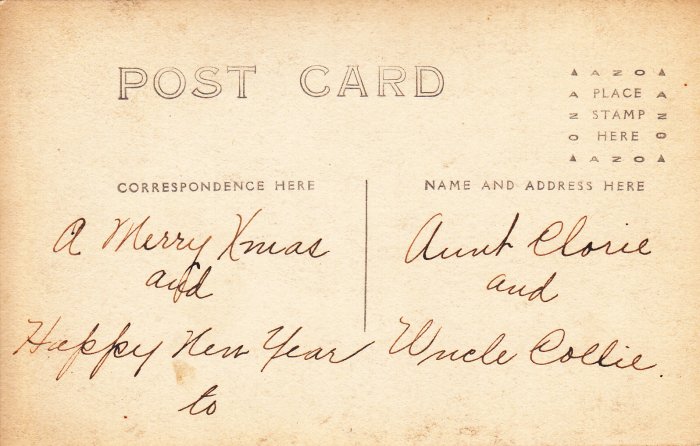 POST CARD
▲ AZO ▲
AZO PLACE AZO
STAMP
HERE
▲ AZO ▲
CORRESPONDENCE HERE
NAME AND ADDRESS HERE
A Merry Xmas
and
Happy New Year
to
Aunt Clorie
and
Uncle Collie.